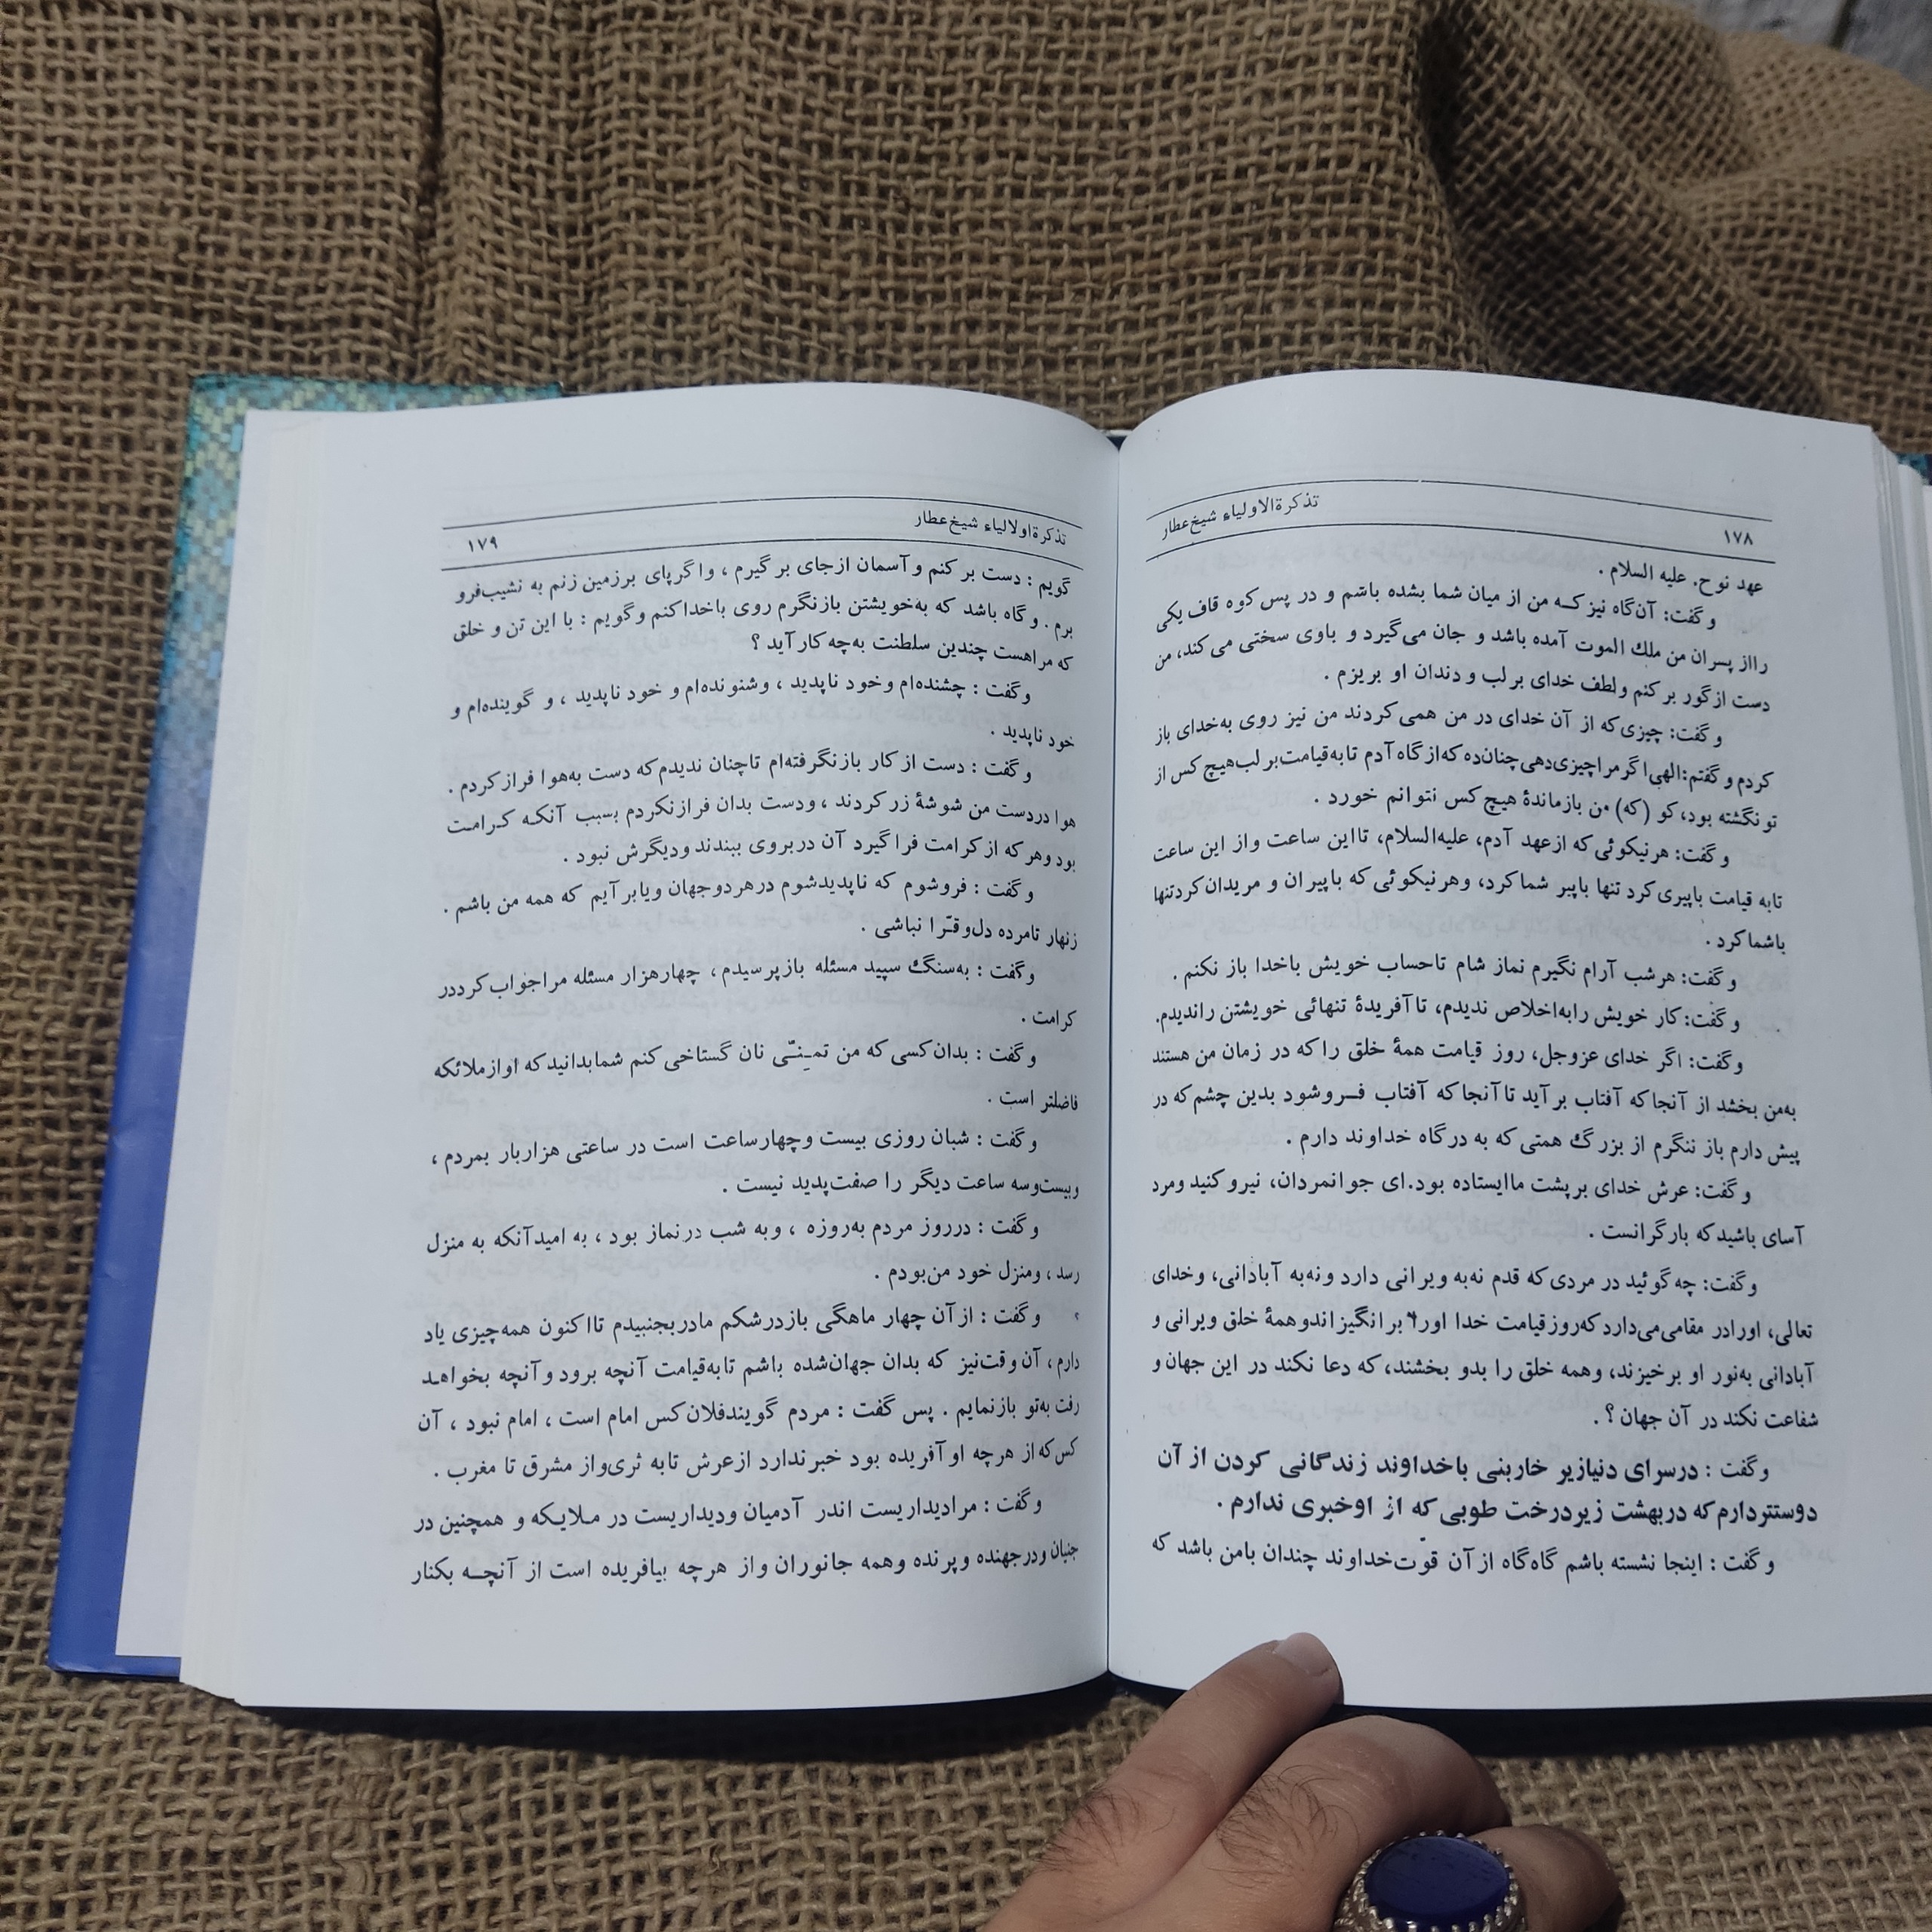 ۱۷۸
تذکرةالاولیاء شیخ‌عطار
عهد نوح. علیه السلام .
و گفت: آن‌گاه نیز کـه من از میان شما بشده باشم و در پس کوه قاف یکی
رااز پسران من ملك الموت آمده باشد و جان می‌گیرد و باوی سختی می کند، من
دست ازگور بر کنم ولطف خدای بر لب و دندان او بریزم .
و گفت: چیزی‌که از آن خدای در من همی کردند من نیز روی به‌خدای باز
کردم و گفتم:الهی اگر مرا چیزی‌دهی چنان‌ده که‌از گاه آدم تا به‌قیامت بر لب‌هیچ کس از
تو نگشته بود، کو (که) من بازماندهٔ هیچ کس نتوانم خورد .
و گفت: هر نیکوئی که ازعهد آدم، علیه‌السلام، تااین ساعت واز این ساعت
تابه قیامت باپیری کرد تنها باپیر شما کرد، وهر نیکوئی که باپیران و مریدان کردتنها
باشما کرد .
و گفت: هرشب آرام نگیرم نماز شام تاحساب خویش باخدا باز نکنم .
و گفت: کار خویش رابه‌اخلاص ندیدم، تا آفریدهٔ تنهائی خویشتن راندیدم.
و گفت: اگر خدای عزوجل، روز قیامت همهٔ خلق را که در زمان من هستند
به‌من بخشد از آنجا که آفتاب بر آید تا آنجا که آفتاب فـروشود بدین چشم که در
پیش دارم باز ننگرم از بزرگ همتی که به درگاه خداوند دارم .
و گفت: عرش خدای بر پشت ماایستاده بود.ای جوانمردان، نیرو کنید ومرد
آسای باشید که بارگرانست .
و گفت: چه گوئید در مردی که قدم نه‌به ویرانی دارد ونه‌به آبادانی، وخدای
تعالی، اورادر مقامی‌می‌دارد که‌روز قیامت خدا اورا بر انگیزاند وهمهٔ خلق ویرانی و
آبادانی به‌نور او برخیزند، وهمه خلق را بدو بخشند، که دعا نکند در این جهان و
شفاعت نکند در آن جهان ؟ .
و گفت : درسرای دنیازیر خاربنی باخداوند زندگانی کردن از آن
دوستتردارم که دربهشت زیردرخت طوبی که از اوخبری ندارم .
و گفت : اینجا نشسته باشم گاه‌گاه از آن قوّت‌خداوند چندان بامن باشد که
تذکرةاولالیاء شیخ‌عطار
۱۷۹
گویم : دست بر کنم و آسمان ازجای بر گیرم ، واگرپای برزمین زنم به نشیب‌فرو
برم . و گاه باشد که به‌خویشتن بازنگرم روی باخداکنم وگویم : با این تن و خلق
که مراهست چندین سلطنت به‌چه کارآید ؟
و گفت : چشنده‌ام وخود ناپدید ، وشنونده‌ام و خود ناپدید ، و گوینده‌ام و
خود ناپدید .
و گفت : دست از کار بازنگرفته‌ام تاچنان ندیدم که دست به‌هوا فراز کردم .
هوا دردست من شوشهٔ زر کردند ، ودست بدان فرازنکردم بسبب آنکـه کـرامـت
بود وهر که از کرامت فراگیرد آن دربروی ببندند ودیگرش نبود .
و گفت : فروشوم که ناپدیدشوم درهردوجهان ویابر آیم که همه من باشم .
زنهار تامرده دل‌وقرّا نباشی .
و گفت : به‌سنگ سپید مسئله بازپرسیدم ، چهارهزار مسئله مراجواب کرددر
کرامت .
و گفت : بدان کسی که من تمنّی نان گستاخی کنم شمابدانید که اوازملائکه
فاضلتر است .
و گفت : شبان روزی بیست وچهارساعت است در ساعتی هزاربار بمردم ،
وبیست‌وسه ساعت دیگر را صفت‌پدید نیست .
و گفت : درروز مردم به‌روزه ، وبه شب درنماز بود ، به امیدآنکه به منزل
رسد ، ومنزل خود من‌بودم .
و گفت : از آن چهار ماهگی بازدرشکم مادربجنبیدم تااکنون همه‌چیزی یاد
دارم ، آن وقت‌نیز که بدان جهان‌شده باشم تابه‌قیامت آنچه برود و آنچه بخواهـد
رفت به‌تو بازنمایم . پس گفت : مردم گویندفلان کس امام است ، امام نبود ، آن
کس که از هرچه او آفریده بود خبرندارد ازعرش تابه ثری‌واز مشرق تا مغرب .
و گفت : مرادیداریست اندر آدمیان ودیداریست در مـلایـکه و همچنین در
جنیان ودرجهنده وپرنده وهمه جانوران واز هرچه بیافریده است از آنچـه بکنار